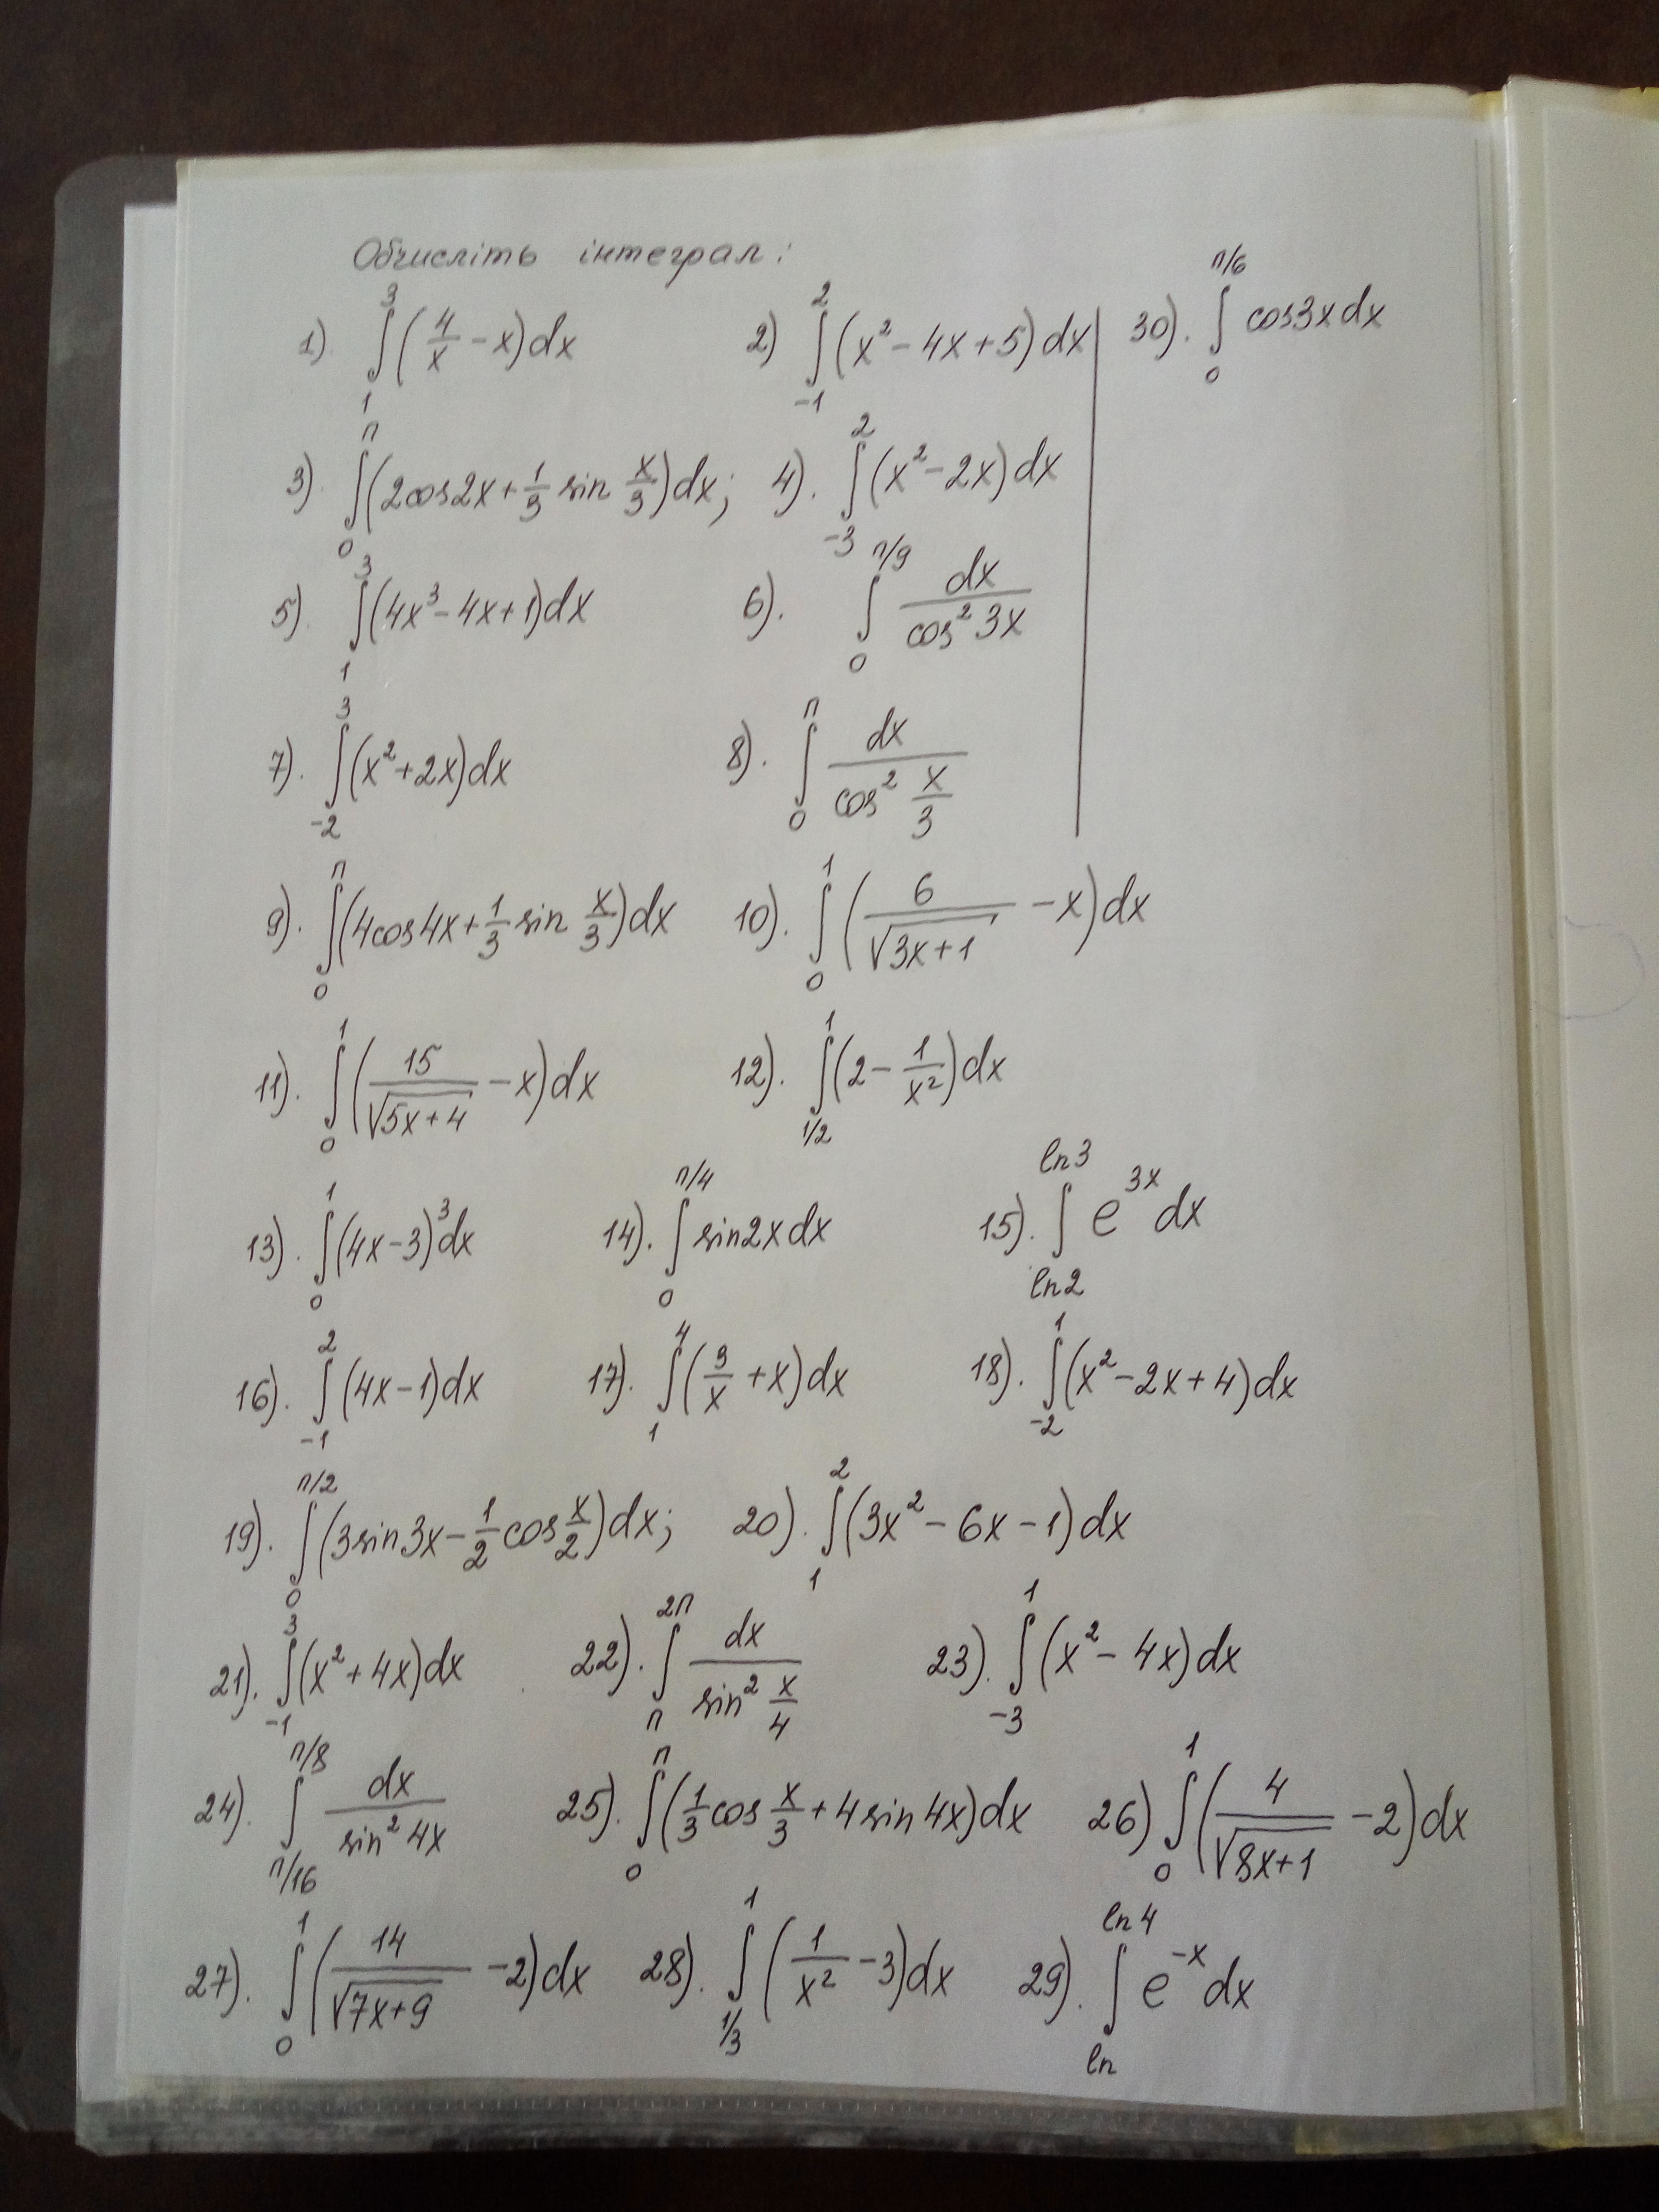 Обчисліть інтеграл:
1) ∫₁³ (4/x − x)dx 2) ∫₋₁² (x² − 4x + 5)dx 30). ∫₀^(π/6) cos3x dx
3). ∫₀^π (2cos2x + 1/3 sin x/3)dx; 4). ∫₋₃² (x² − 2x)dx
5). ∫₁³ (4x³ − 4x + 1)dx 6). ∫₀^(π/9) dx/(cos² 3x)
7). ∫₋₂³ (x² + 2x)dx 8). ∫₀^π dx/(cos² x/3)
9). ∫₀^π (4cos4x + 1/3 sin x/3)dx 10). ∫₀¹ (6/√(3x+1) − x)dx
11). ∫₀¹ (15/√(5x+4) − x)dx 12). ∫_(1/2)^1 (2 − 1/x²)dx
13). ∫₀¹ (4x − 3)³dx 14). ∫₀^(π/4) sin2x dx 15). ∫_(ln2)^(ln3) e^(3x) dx
16). ∫₋₁² (4x − 1)dx 17). ∫₁⁴ (9/x + x)dx 18). ∫₋₂¹ (x² − 2x + 4)dx
19). ∫₀^(π/2) (3sin3x − 1/2 cos x/2)dx; 20). ∫₁² (3x² − 6x − 1)dx
21). ∫₋₁³ (x² + 4x)dx 22). ∫_π^(2π) dx/(sin² x/4) 23). ∫₋₃¹ (x² − 4x)dx
24). ∫_(π/16)^(π/8) dx/(sin² 4x) 25). ∫₀^π (1/3 cos x/3 + 4sin4x)dx 26) ∫₀¹ (4/√(8x+1) − 2)dx
27). ∫₀¹ (14/√(7x+9) − 2)dx 28). ∫_(1/3)^1 (1/x² − 3)dx 29). ∫_(ln)^(ln4) e^(−x) dx